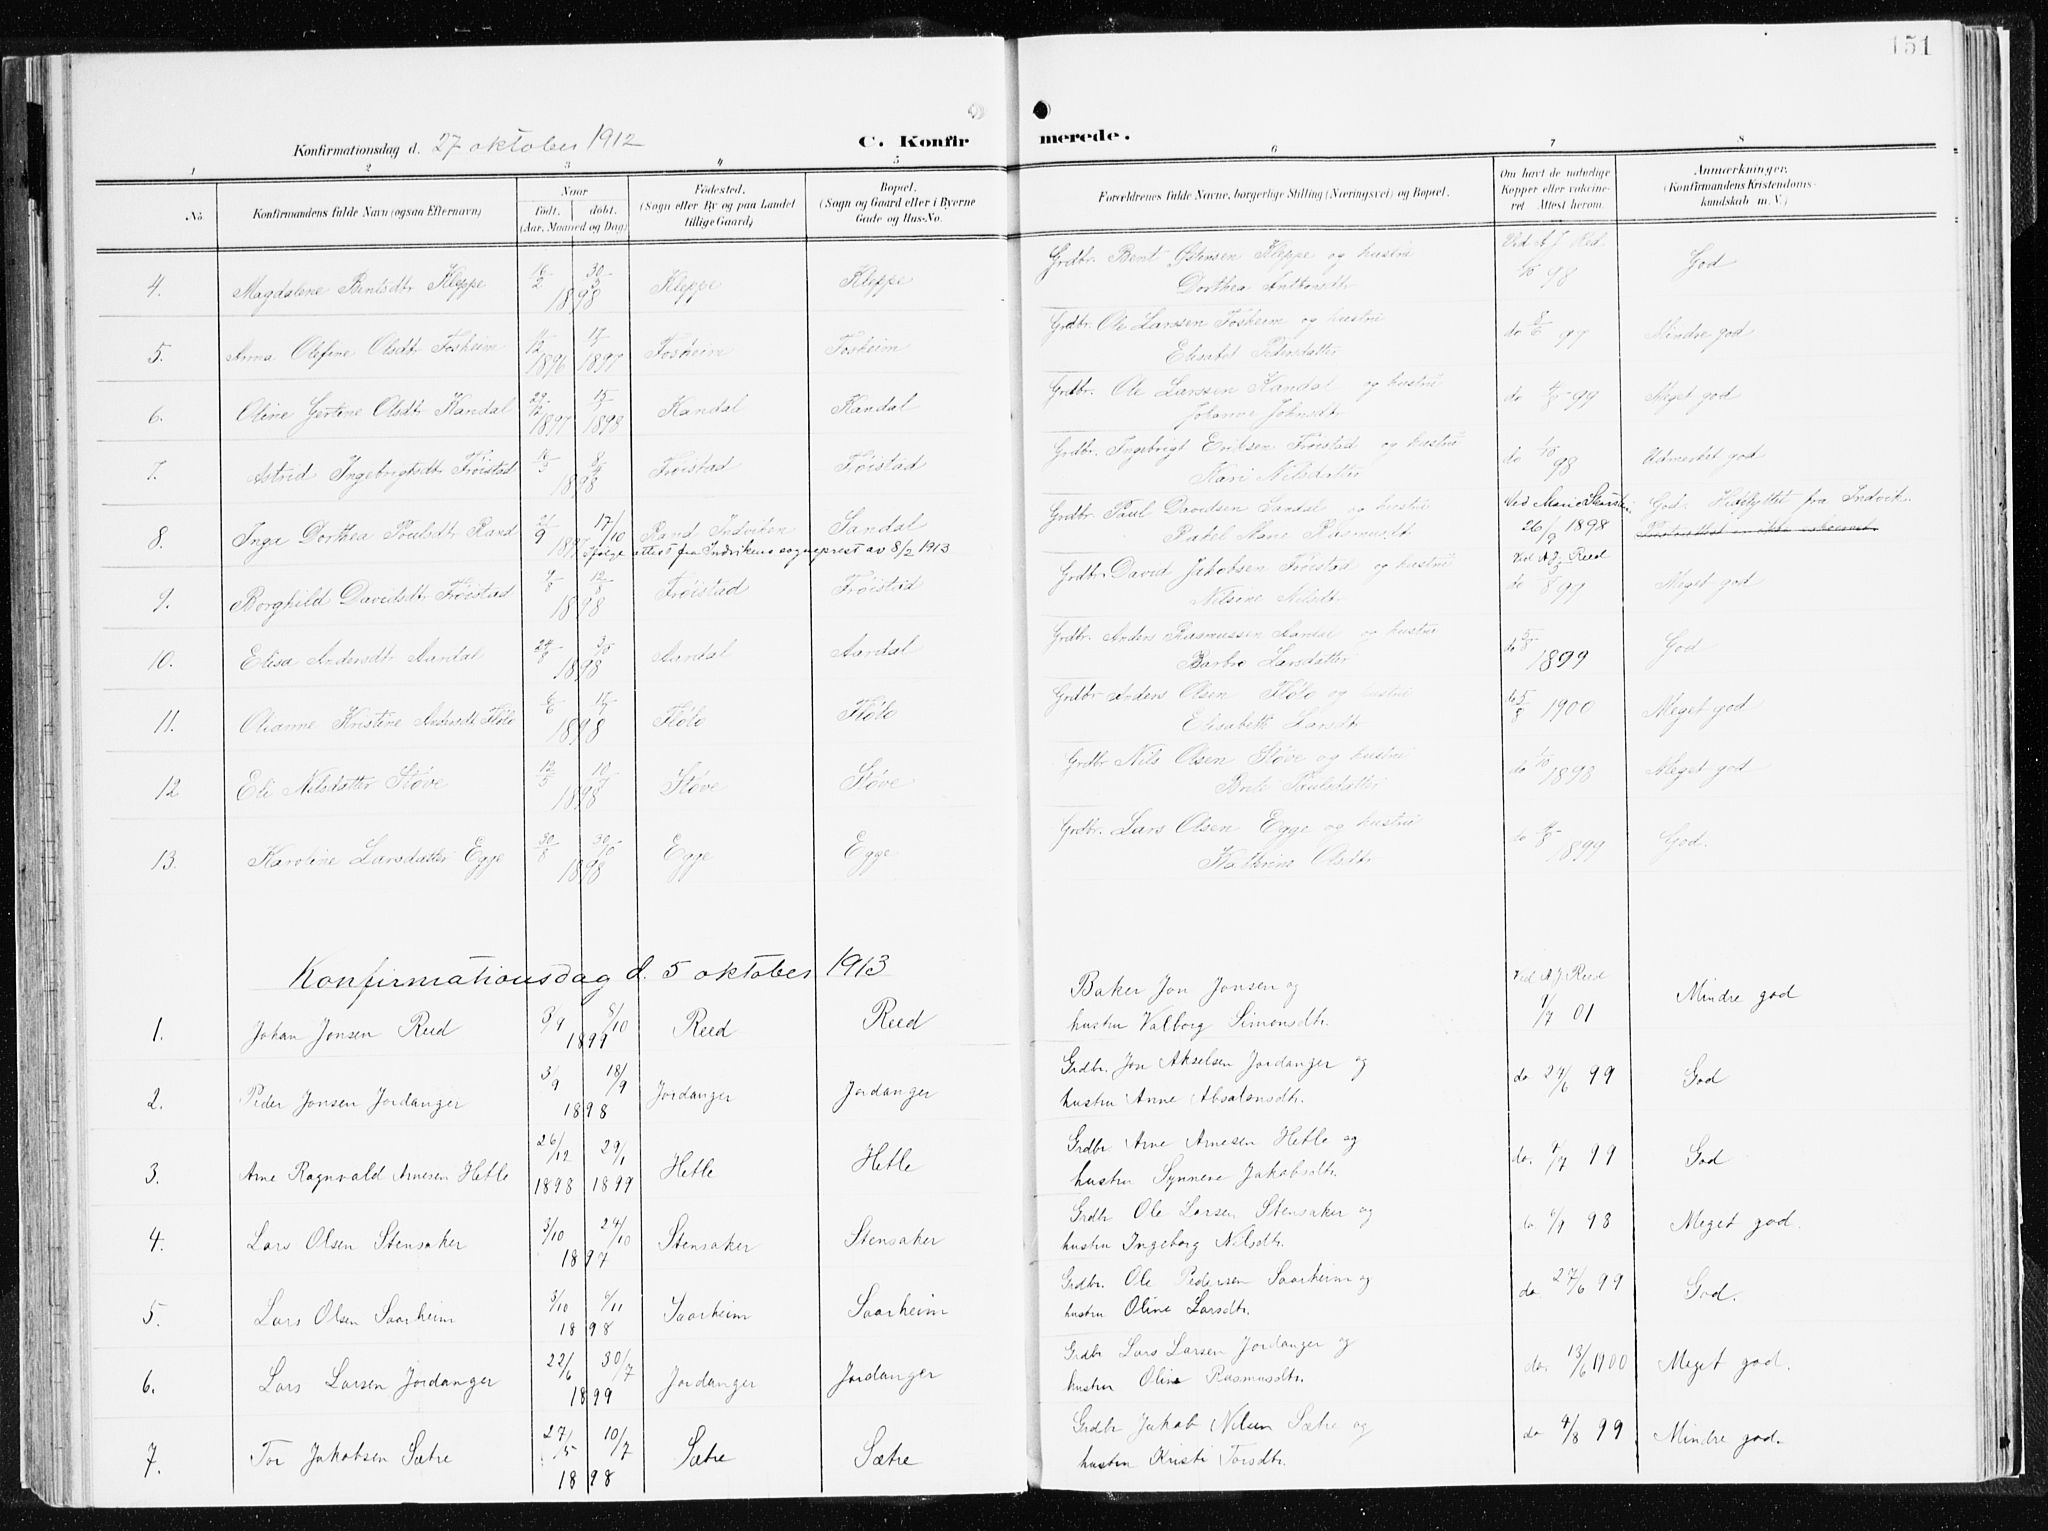 151
Konfirmationsdag d. 27 oktober 1912
C. Konfirmerede.
1 2 3 4 5 6 7 8
No. Konfirmandens fulde Navn (ogsaa Efternavn) Naar født, døbt. (Aar, Maaned og Dag) Fødested. (Sogn eller By og paa Landet tillige Gaard) Bopæl. (Sogn og Gaard eller i Byerne Gade og Hus-No. Forældrenes fulde Navne, borgerlige Stilling (Næringsvei) og Bopæl. Om havt de naturlige Kopper eller vakcineret. Attest herom. Anmærkninger. (Konfirmandens Kristendomskundskab m. V.)
4. Magdalene Bentsdtr Kleppe 1898 Kleppe Kleppe Grdbr. Bent Kleppe og hustru Dorthea Antonsdtr Ved A J Red 98 God
5. Anna Olefine Olsdtr Fosheim 1896 1897 Fosheim Fosheim Grdbr. Ole Larssen Fosheim og hustru Elisabet Pedersdatter do 8/6 99 Mindre god
6. Oline Gertine Olsdtr Kandal 29/12 1897 1898 Kandal Kandal Grdbr. Ole Larssen Kandal og hustru Johanne Johnsdtr do 99 Meget god
7. Astrid Ingebrigtsdtr Frøistad 1898 Frøistad Frøistad Grdbr. Ingebrigt Eriksen Frøistad og hustru Kari Nilsdatter do 98 Udmerket god
8. Inga Dorthea Poulsdtr Rand 21/9 17/10 1897 Rand Indviken Sandal Grdbr. Paul Davidsen Sandal og hustru Rakel Rasmusdtr Ved Marie 26/9 1898 God. Hidflyttet fra Indvik.
ifølge attest fra Indvikens sogneprest av 8/2 1913
9. Borghild Davidsdtr Frøistad 12/8 1898 Frøistad Frøistad Grdbr. David Jakobsen Frøistad og hustru Nilsine Nilsdtr Ved A J Reed do 99 Meget god
10. Elisa Andersdtr Aardal 24/8 1898 Aardal Aardal Grdbr. Anders Rasmussen Aardal og hustru Barbro Larsdatter do 5/8 1899 God
11. Olianne Kristine Andersdtr Flølo 6/6 17/7 1898 Flølo Flølo Grdbr. Anders Olsen Flølo og hustru Elisabeth Larsdtr do 5/8 1900 Meget god
12 Eli Nilsdatter Støve 12/5 10/7 1898 Støve Støve Grdbr Nils Olsen Støve og hustru Poulsdatter do 1898 Meget god
13. Karoline Larsdatter Egge 30/8 30/10 1898 Egge Egge Grdbr. Lars Olsen Egge og hustru Kathrine Olsdtr do 1899 God.
Konfirmationsdag d. 5 oktober 1913
1. Johan Jonsen Reed 3/9 8/10 1899 Reed Reed Baker Jon Jonsen og hustru Valborg Simonsdtr. Ved A J Reed 1/7 01 Mindre god
2. Peder Jonsen Jordanger 3/9 18/9 1898 Jordanger Jordanger Grdbr. Jon Akselsen Jordanger og hustru Anne Absalonsdtr. do 24/6 99 God
3. Arne Ragnvald Arnesen Hetle 26/12 1898 29/1 1899 Hetle Hetle Grdbr Arne Arnesen Hetle og hustru Synneve Jakobsdtr. do. 99 God
4. Lars Olsen Stensaker 3/10 24/10 1897 Stensaker Stensaker Grdbr Ole Larsen Stensaker og hustru Ingeborg Nilsdtr. do 98 Meget god.
5. Lars Olsen Saarheim 3/10 6/11 1898 Saarheim Saarheim Grdbr. Ole Pedersen Saarheim og hustru Oline Larsdtr. do. 27/6 99 God.
6. Lars Larsen Jordanger 22/6 30/7 1899 Jordanger Jordanger Grdbr Lars Larsen Jordanger og hustru Oline Rasmusdtr. do. 13/6 1900 Meget god.
7. Tor Jakobsen Sætre 27/5 10/7 1898 Sætre Sætre Grdbr Jakob Nilsen Sætre og hustru Kristi Torsdtr. do 4/8 99 Mindre god.